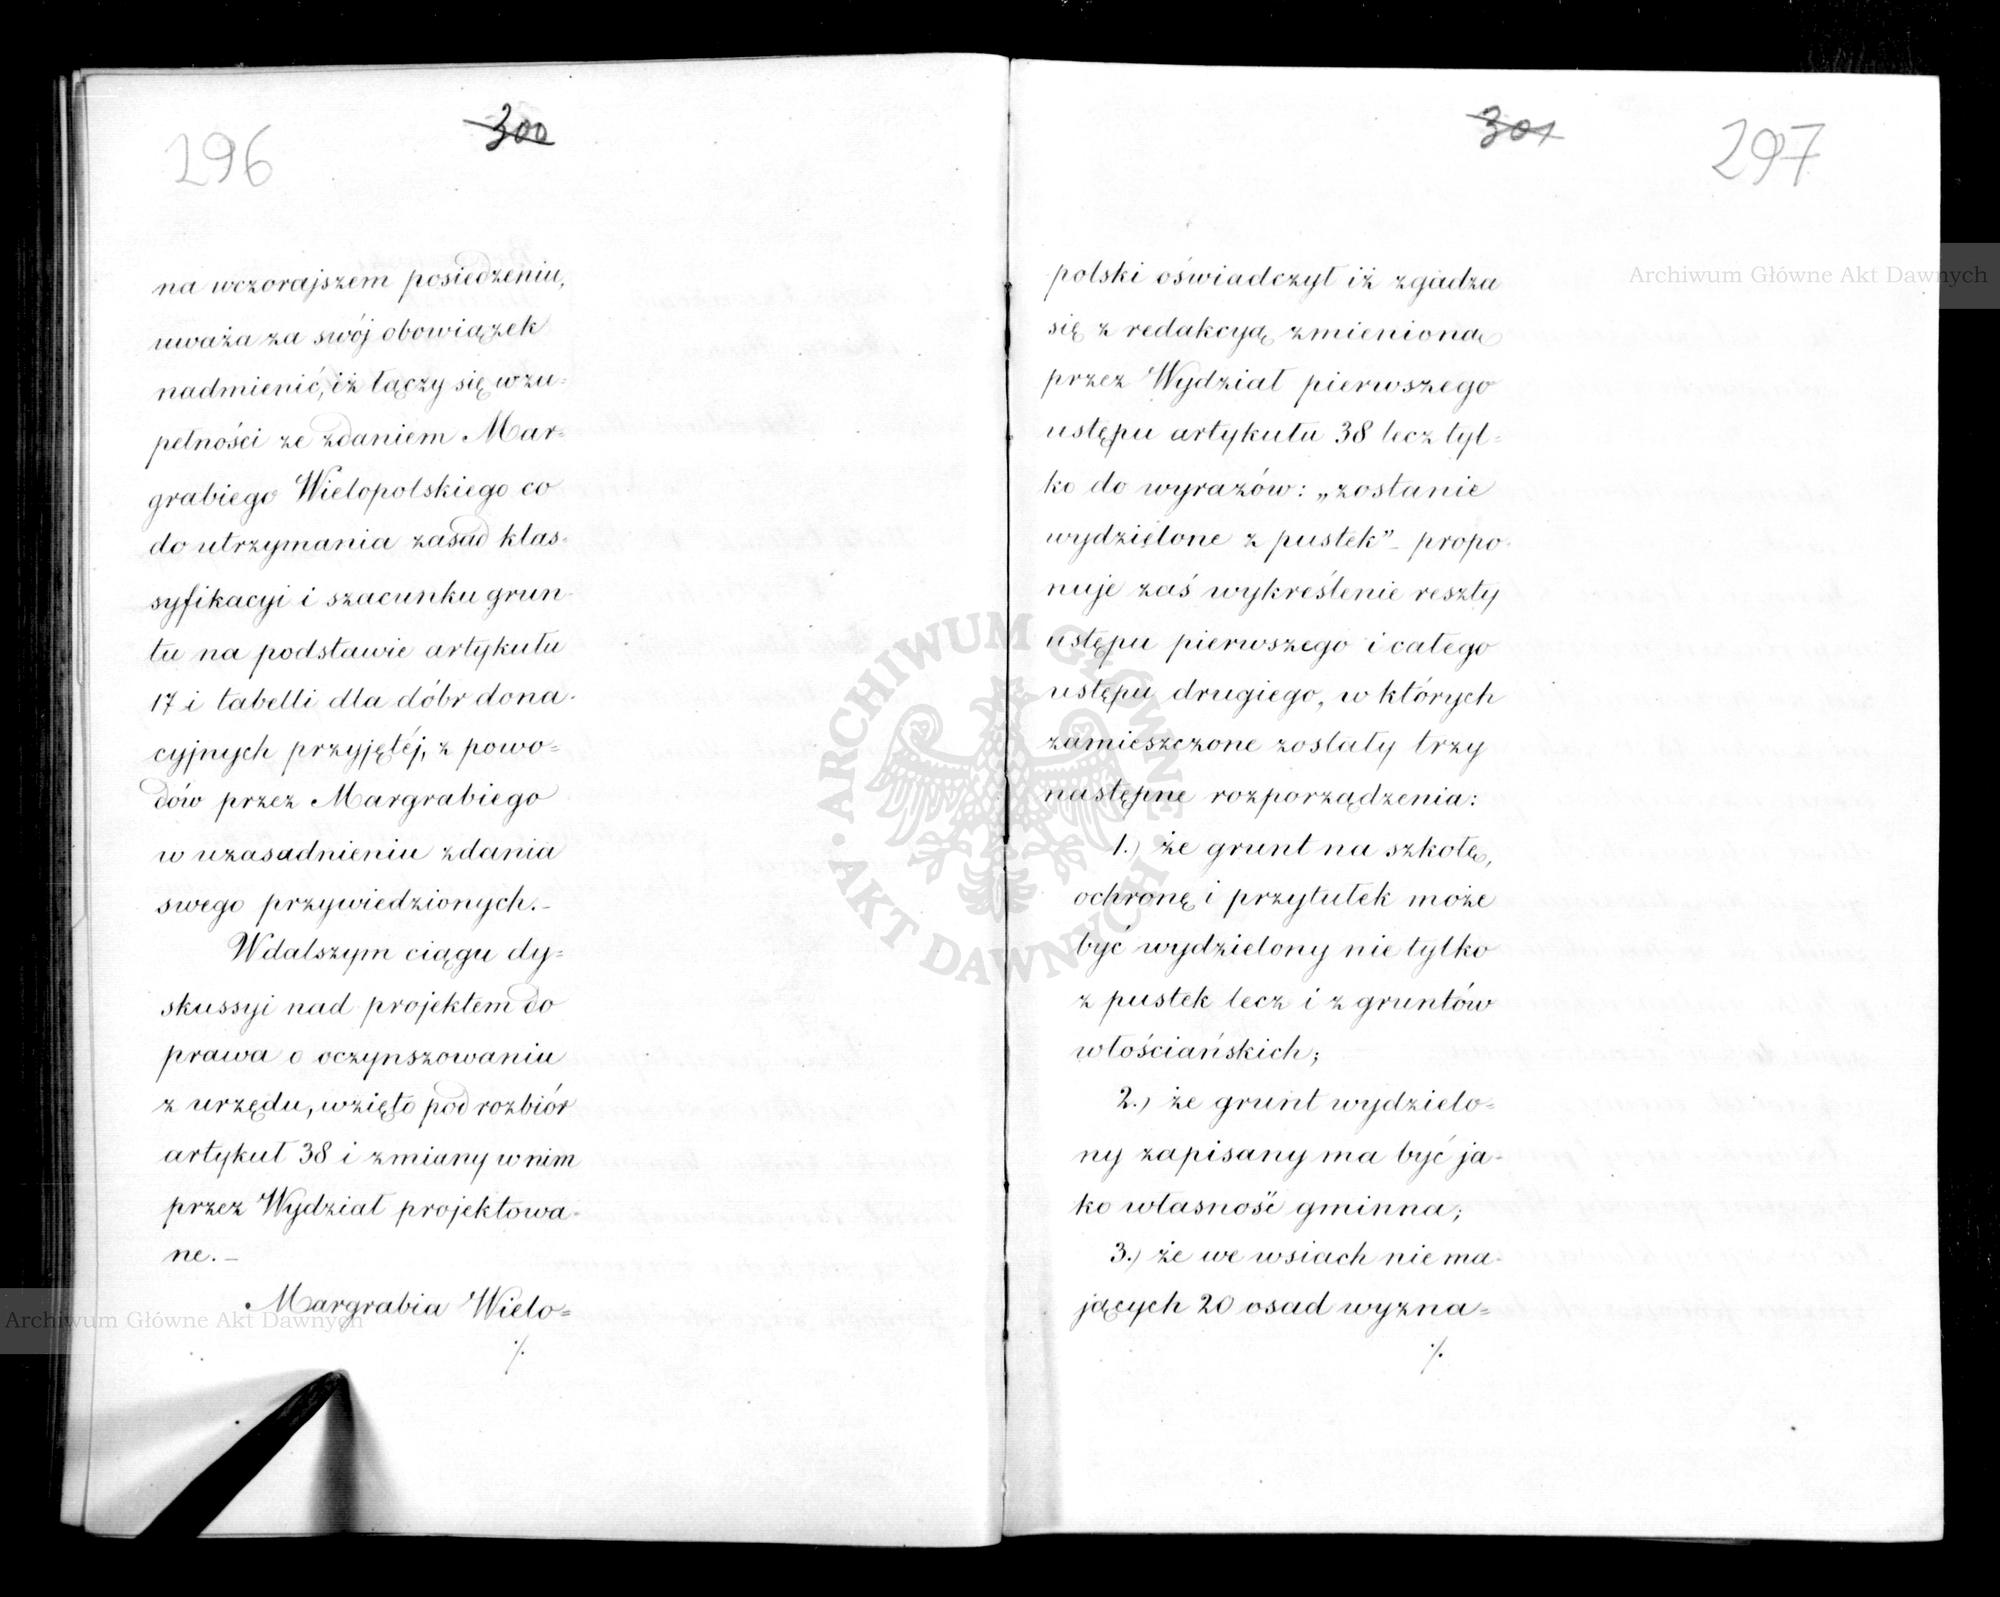 296
300
na wczorajszem posiedzeniu,
uważa za swój obowiązek
nadmienić, iż łączy się w zu-
pełności ze zdaniem Mar-
grabiego Wielopolskiego co
do utrzymania zasad klas-
syfikacyi i szacunku grun-
tu na podstawie artykułu
17 i tabelli dla dóbr dona-
cyjnych przyjętéj, z powo-
dów przez Margrabiego
w uzasadnieniu zdania
swego przywiedzionych.-
W dalszym ciągu dy-
skussyi nad projektem do
prawa o oczynszowaniu
z urzędu, wzięto pod rozbiór
artykuł 38 i zmiany w nim
przez Wydział projektowa-
ne.-
Margrabia Wielo-
./.
301
297
polski oświadczył iż zgadza
się z redakcyą zmienioną
przez Wydział pierwszego
ustępu artykułu 38 lecz tyl-
ko do wyrazów: „zostanie
wydzielone z pustek” - propo-
nuje zaś wykreślenie reszty
ustępu pierwszego i całego
ustępu drugiego, w których
zamieszczone zostały trzy
następne rozporządzenia:
1.) że grunt na szkołę,
ochronę i przytułek może
być wydzielony nie tylko
z pustek lecz i z gruntów
włościańskich;
2.) że grunt wydzielo-
ny zapisany ma być ja-
ko własność gminna;
3.) że we wsiach nie ma-
jących 20 osad wyzna-
./.
Archiwum Główne Akt Dawnych
Archiwum Główne Akt Dawnych
ARCHIWUM GŁÓWNE AKT DAWNYCH